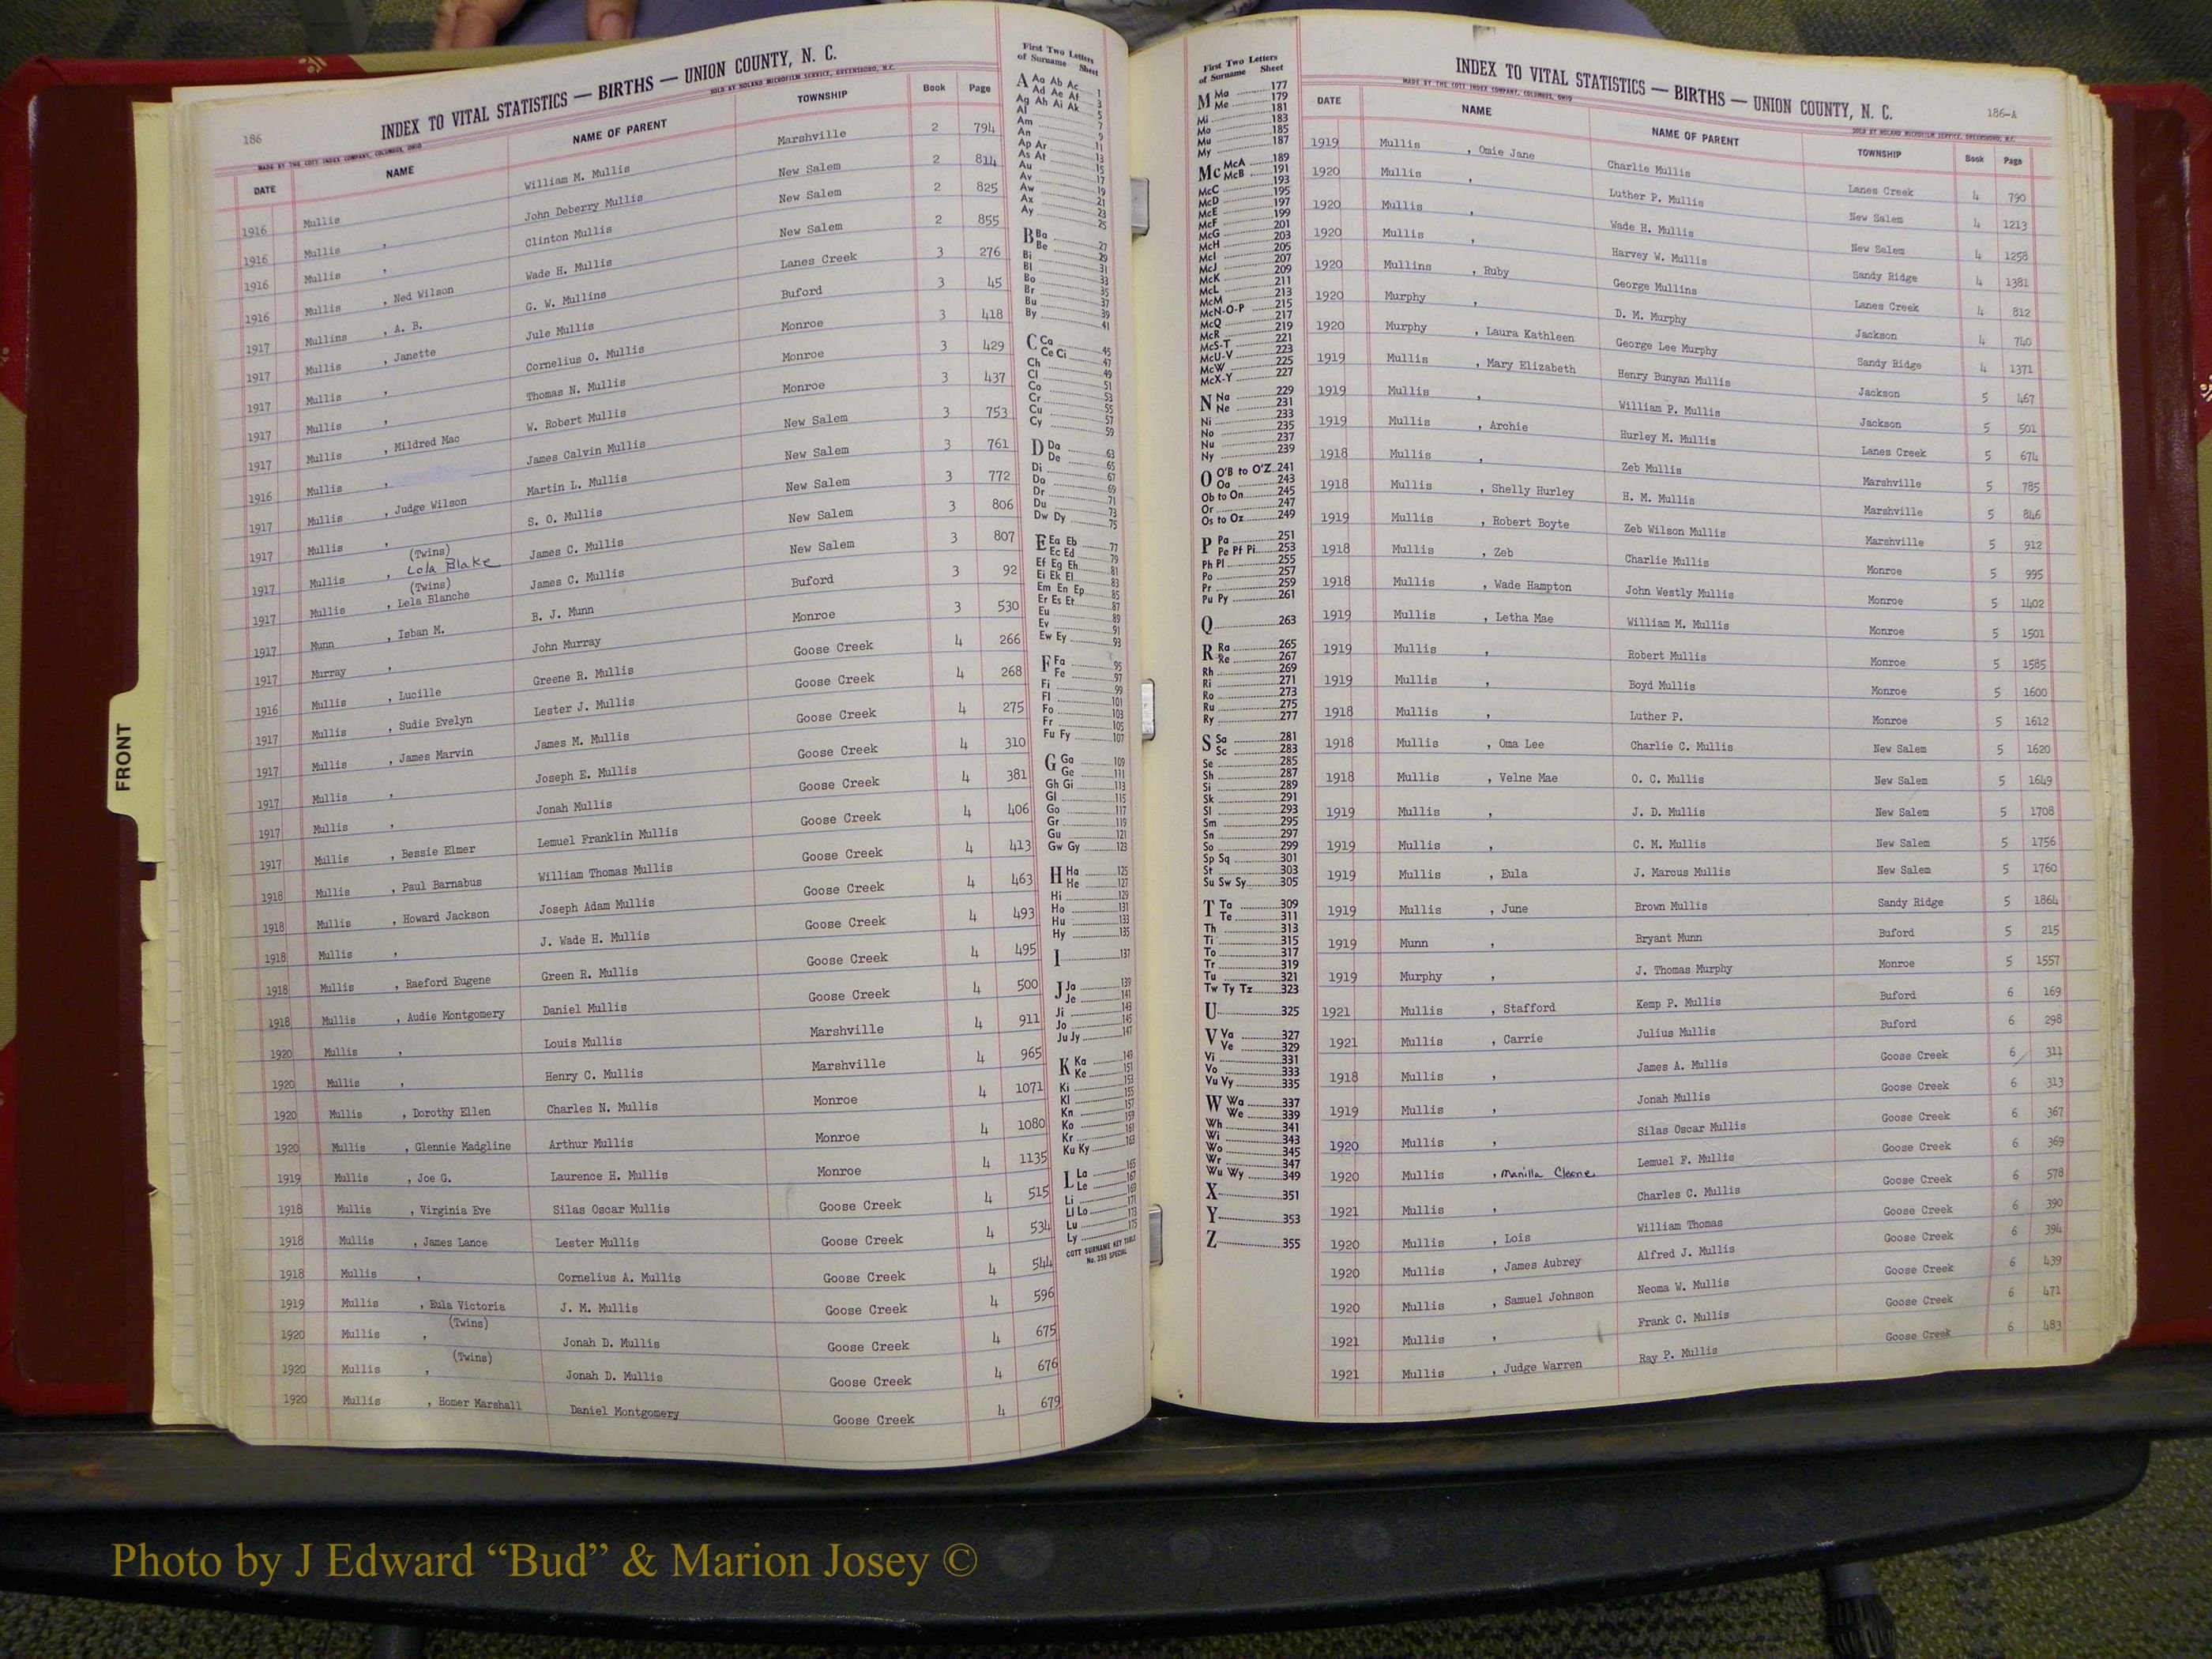 186
INDEX TO VITAL STATISTICS — BIRTHS — UNION COUNTY, N. C.
MADE BY THE COTT INDEX COMPANY, COLUMBUS, OHIO SOLD BY NOLAND MICROFILM SERVICE, GREENSBORO, N.C.
DATE NAME NAME OF PARENT TOWNSHIP Book Page
1916 Mullis William M. Mullis Marshville 2 794
1916 Mullis , John Deberry Mullis New Salem 2 814
1916 Mullis , Clinton Mullis New Salem 2 825
1916 Mullis , Ned Wilson Wade H. Mullis New Salem 2 855
1917 Mullins , A. B. G. W. Mullins Lanes Creek 3 276
1917 Mullis , Janette Jule Mullis Buford 3 45
1917 Mullis , Cornelius O. Mullis Monroe 3 418
1917 Mullis , Thomas N. Mullis Monroe 3 429
1917 Mullis , Mildred Mac W. Robert Mullis Monroe 3 437
1916 Mullis , James Calvin Mullis New Salem 3 753
1917 Mullis , Judge Wilson Martin L. Mullis New Salem 3 761
1917 Mullis , S. O. Mullis New Salem 3 772
(Twins)
1917 Mullis , Lola Blake James C. Mullis New Salem 3 806
(Twins)
1917 Mullis , Lela Blanche James C. Mullis New Salem 3 807
1917 Munn , Isban M. B. J. Munn Buford 3 92
1917 Murray , John Murray Monroe 3 530
1916 Mullis , Lucille Greene R. Mullis Goose Creek 4 266
1917 Mullis , Sudie Evelyn Lester J. Mullis Goose Creek 4 268
1917 Mullis , James Marvin James M. Mullis Goose Creek 4 275
1917 Mullis , Joseph E. Mullis Goose Creek 4 310
1917 Mullis , Jonah Mullis Goose Creek 4 381
1917 Mullis , Bessie Elmer Lemuel Franklin Mullis Goose Creek 4 406
1918 Mullis , Paul Barnabus William Thomas Mullis Goose Creek 4 413
1918 Mullis , Howard Jackson Joseph Adam Mullis Goose Creek 4 463
1918 Mullis , J. Wade H. Mullis Goose Creek 4 493
1918 Mullis , Raeford Eugene Green R. Mullis Goose Creek 4 495
1918 Mullis , Audie Montgomery Daniel Mullis Goose Creek 4 500
1920 Mullis , Louis Mullis Marshville 4 911
1920 Mullis , Henry C. Mullis Marshville 4 965
1920 Mullis , Dorothy Ellen Charles N. Mullis Monroe 4 1071
1920 Mullis , Glennie Madgline Arthur Mullis Monroe 4 1080
1919 Mullis , Joe G. Laurence H. Mullis Monroe 4 1135
1918 Mullis , Virginia Eve Silas Oscar Mullis Goose Creek 4 515
1918 Mullis , James Lance Lester Mullis Goose Creek 4 534
1918 Mullis , Cornelius A. Mullis Goose Creek 4 544
1919 Mullis , Eula Victoria J. M. Mullis Goose Creek 4 596
(Twins)
1920 Mullis , Jonah D. Mullis Goose Creek 4 675
(Twins)
1920 Mullis , Jonah D. Mullis Goose Creek 4 676
1920 Mullis , Homer Marshall Daniel Montgomery Goose Creek 4 679
First Two Letters
of Surname Sheet
A Aa Ab Ac 1
Ad Ae Af 3
Ag Ah Ai Ak 5
Al 7
Am 9
An 11
Ap Ar 13
As At 15
Au 17
Av 19
Aw 21
Ax 23
Ay 25
B Ba 27
Be 29
Bi 31
Bl 33
Bo 35
Br 37
Bu 39
By 41
C Ca 45
Ce Ci 47
Ch 49
Cl 51
Co 53
Cr 55
Cu 57
Cy 59
D Da 63
De 65
Di 67
Do 69
Dr 71
Du 73
Dw Dy 75
E Ea Eb 77
Ec Ed 79
Ef Eg Eh 81
Ei Ek El 83
Em En Ep 85
Er Es Et 87
Eu 89
Ev 91
Ew Ey 93
F Fa 95
Fe 97
Fi 99
Fl 101
Fo 103
Fr 105
Fu Fy 107
G Ga 109
Ge 111
Gh Gi 113
Gl 115
Go 117
Gr 119
Gu 121
Gw Gy 123
H Ha 125
He 127
Hi 129
Ho 131
Hu 133
Hy 135
I 137
J Ja 139
Je 141
Ji 143
Jo 145
Ju Jy 147
K Ka 149
Ke 151
Ki 153
Kl 155
Kn 157
Ko 159
Kr 161
Ku Ky 163
L La 165
Le 167
Li 169
Ll Lo 171
Lu 173
Ly 175
COTT SURNAME KEY TABLE
No. 355 SPECIAL
FRONT
First Two Letters
of Surname Sheet
M Ma 177
Me 179
Mi 181
Mo 183
Mu 185
My 187
Mc McA 189
McB 191
McC 193
McD 195
McE 197
McF 199
McG 201
McH 203
McI 205
McJ 207
McK 209
McL 211
McM 213
McN-O-P 215
McQ 217
McR 219
McS-T 221
McU-V 223
McW 225
McX-Y 227
N Na 229
Ne 231
Ni 233
No 235
Nu 237
Ny 239
O O'B to O'Z 241
Oa 243
Ob to On 245
Or 247
Os to Oz 249
P Pa 251
Pe Pf Pi 253
Ph Pl 255
Po 257
Pr 259
Pu Py 261
Q 263
R Ra 265
Re 267
Rh 269
Ri 271
Ro 273
Ru 275
Ry 277
S Sa 281
Sc 283
Se 285
Sh 287
Si 289
Sk 291
Sl 293
Sm 295
Sn 297
So 299
Sp Sq 301
St 303
Su Sw Sy 305
T Ta 309
Te 311
Th 313
Ti 315
To 317
Tr 319
Tu 321
Tw Ty Tz 323
U 325
V Va 327
Ve 329
Vi 331
Vo 333
Vu Vy 335
W Wa 337
We 339
Wh 341
Wi 343
Wo 345
Wr 347
Wu Wy 349
X 351
Y 353
Z 355
INDEX TO VITAL STATISTICS — BIRTHS — UNION COUNTY, N. C.
186-A
MADE BY THE COTT INDEX COMPANY, COLUMBUS, OHIO SOLD BY NOLAND MICROFILM SERVICE, GREENSBORO, N.C.
DATE NAME NAME OF PARENT TOWNSHIP Book Page
1919 Mullis , Omie Jane Charlie Mullis Lanes Creek 4 790
1920 Mullis , Luther P. Mullis New Salem 4 1213
1920 Mullis , Wade H. Mullis New Salem 4 1258
1920 Mullis , Harvey W. Mullis Sandy Ridge 4 1381
1920 Mullins , Ruby George Mullins Lanes Creek 4 812
1920 Murphy , D. M. Murphy Jackson 4 740
1920 Murphy , Laura Kathleen George Lee Murphy Sandy Ridge 4 1371
1919 Mullis , Mary Elizabeth Henry Bunyan Mullis Jackson 5 467
1919 Mullis , William P. Mullis Jackson 5 501
1919 Mullis , Archie Hurley M. Mullis Lanes Creek 5 674
1918 Mullis , Zeb Mullis Marshville 5 785
1918 Mullis , Shelly Hurley H. M. Mullis Marshville 5 846
1919 Mullis , Robert Boyte Zeb Wilson Mullis Marshville 5 912
1918 Mullis , Zeb Charlie Mullis Monroe 5 995
1918 Mullis , Wade Hampton John Westly Mullis Monroe 5 1402
1919 Mullis , Letha Mae William M. Mullis Monroe 5 1501
1919 Mullis , Robert Mullis Monroe 5 1585
1919 Mullis , Boyd Mullis Monroe 5 1600
1918 Mullis , Luther P. Monroe 5 1612
1918 Mullis , Oma Lee Charlie C. Mullis New Salem 5 1620
1918 Mullis , Velne Mae O. C. Mullis New Salem 5 1649
1919 Mullis , J. D. Mullis New Salem 5 1708
1919 Mullis , C. M. Mullis New Salem 5 1756
1919 Mullis , Eula J. Marcus Mullis New Salem 5 1760
1919 Mullis , June Brown Mullis Sandy Ridge 5 1864
1919 Munn , Bryant Munn Buford 5 215
1919 Murphy , J. Thomas Murphy Monroe 5 1557
1921 Mullis , Stafford Kemp P. Mullis Buford 6 169
1921 Mullis , Carrie Julius Mullis Buford 6 298
1918 Mullis , James A. Mullis Goose Creek 6 311
1919 Mullis , Jonah Mullis Goose Creek 6 313
1920 Mullis , Silas Oscar Mullis Goose Creek 6 367
1920 Mullis , Manilla Cleone Lemuel F. Mullis Goose Creek 6 369
1921 Mullis , Charles C. Mullis Goose Creek 6 578
1920 Mullis , Lois William Thomas Goose Creek 6 390
1920 Mullis , James Aubrey Alfred J. Mullis Goose Creek 6 394
1920 Mullis , Samuel Johnson Neoma W. Mullis Goose Creek 6 439
1921 Mullis , Frank C. Mullis Goose Creek 6 471
1921 Mullis , Judge Warren Ray P. Mullis Goose Creek 6 483
Photo by J Edward “Bud” & Marion Josey ©